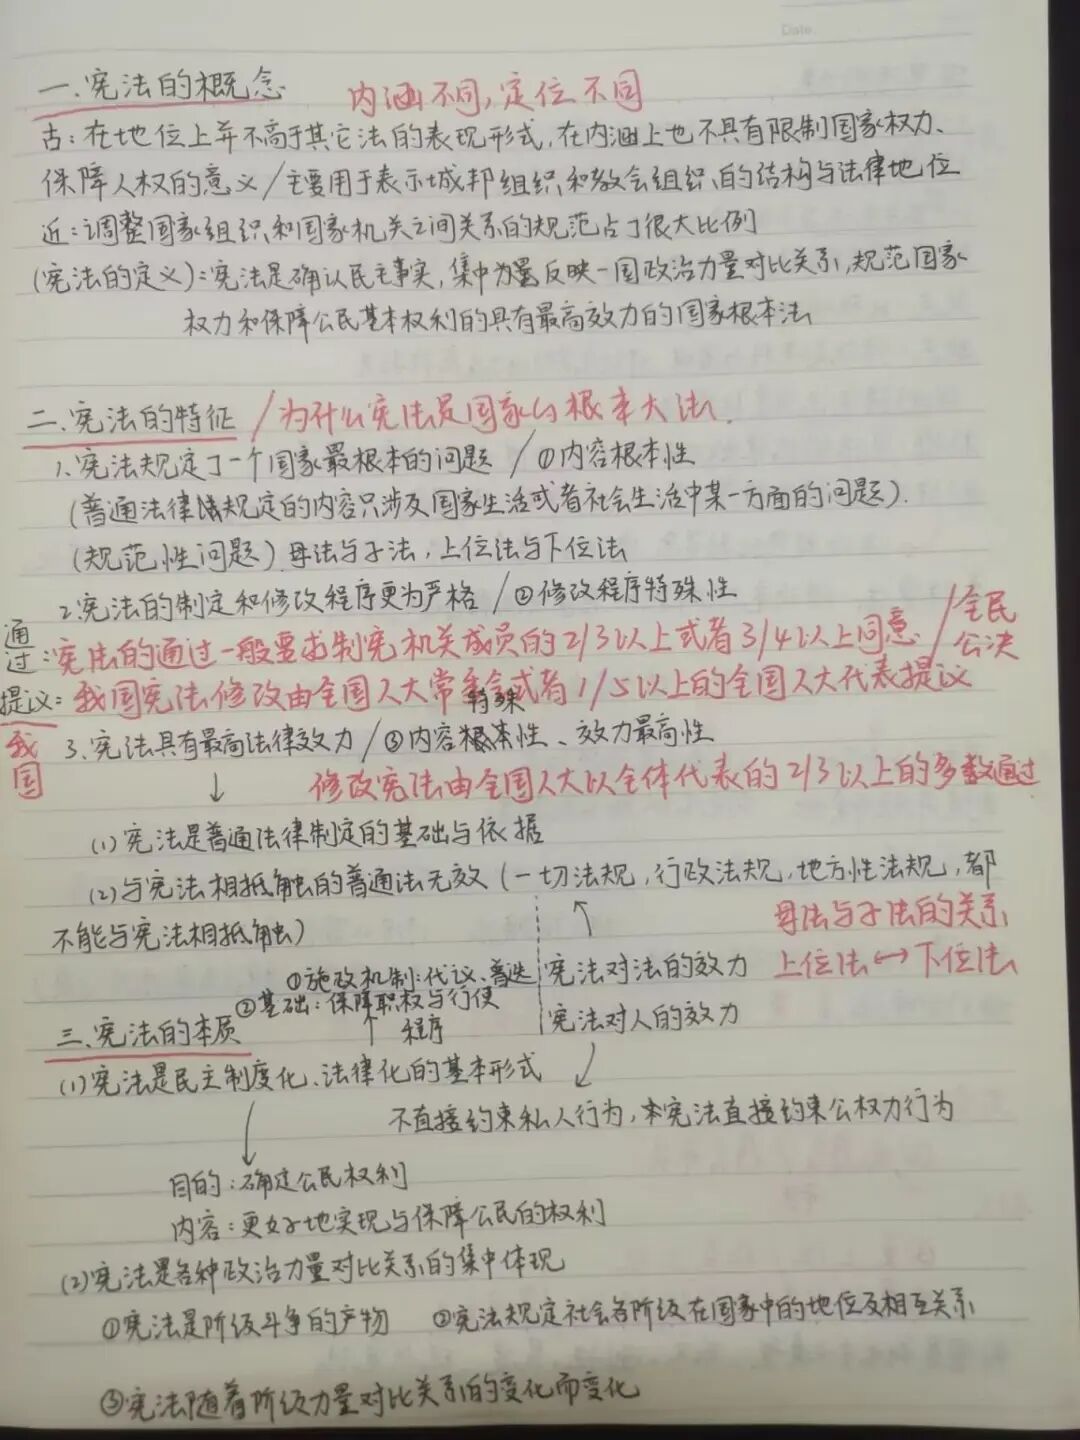 Date
一.宪法的概念 内涵不同,定位不同
古:在地位上并不高于其它法的表现形式,在内涵上也不具有限制国家权力、
保障人权的意义/主要用于表示城邦组织和教会组织的结构与法律地位
近:调整国家组织和国家机关之间关系的规范占了很大比例
(宪法的定义):宪法是确认民主事实,集中反映一国政治力量对比关系,规范国家
权力和保障公民基本权利的具有最高效力的国家根本法
二.宪法的特征/为什么宪法是国家的根本大法.
1.宪法规定了一个国家最根本的问题/①内容根本性
(普通法律规定的内容只涉及国家生活或者社会生活中某一方面的问题).
(规范性问题)母法与子法,上位法与下位法
2.宪法的制定和修改程序更为严格/②修改程序特殊性
通过:宪法的通过一般要求制宪机关成员的2/3以上或者3/4以上同意/全民
公决
提议:我国宪法修改由全国人大常委会或者1/5以上的全国人大代表提议
我国
特殊
3.宪法具有最高法律效力/③内容根本性、效力最高性
修改宪法由全国人大以全体代表的2/3以上的多数通过
(1)宪法是普通法律制定的基础与依据
(2)与宪法相抵触的普通法无效(一切法规,行政法规,地方性法规,都
不能与宪法相抵触)
母法与子法的关系
上位法↔下位法
①施政机制:代议、普选
宪法对法的效力
②基础:保障职权与行使
程序
宪法对人的效力
三.宪法的本质
(1)宪法是民主制度化、法律化的基本形式
不直接约束私人行为,本宪法直接约束公权力行为
目的:确定公民权利
内容:更好地实现与保障公民的权利
(2)宪法是各种政治力量对比关系的集中体现
①宪法是阶级斗争的产物 ②宪法规定社会各阶级在国家中的地位及相互关系
③宪法随着阶级力量对比关系的变化而变化